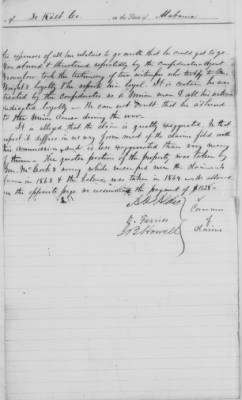 of De Kalb Co. in the State of Alabama
the expenses of all his relations to go north that he could get to go
was abused & threatened repeatedly by the Confederates Agent
took the testimony of two witnesses who
loyalty the reports him loyal. It is certain he
treated by the Confederates as a Union man & all his actions
indicated loyalty — We can not doubt that he adhered
to the Union Cause during the war.
It is alleged that the claim is greatly exaggerated. In that
respect it differs in no way from most of the claims filed with
this commission, and is less exaggerated than very many
of them. The greater portion of the property was taken by
Gen. McCook's army while encamped near the claimants
farm in 1863 & the balance was taken in 1864 with allowed
in the opposite page we recommend the payment of $1528.—
A. O. Aldis
O. Ferriss
J. B. Howell
Commrs
of
Claims